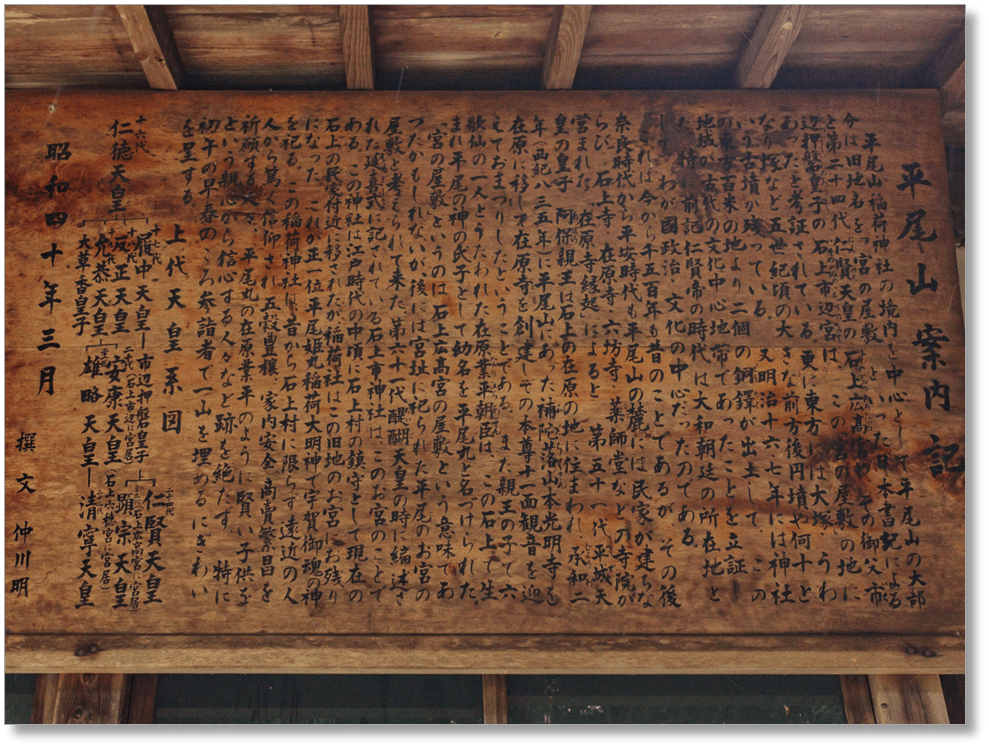 平尾山案内記
平尾山稲荷神社の境内を中心として平尾山の大部
今は旧地名を「宮の屋敷」といった 日本書記による
と第二十四代 仁賢天皇の 石上広高宮や その御父 市
辺押磐皇子の石上市辺宮は この宮の屋敷の地に
あったと考証されている 東に東方には大塚 うわ
なり塚など五世紀頃の大きな前方後円墳や何十と
いう古墳が残っている 又明治十六七年には神社
の東方百米の地より二個の銅鐸が出土して この
地域が古代の文化中心地帯であったことを立証し
た 特に前記仁賢帝の時代は大和朝廷の所在地と
して わが国政治 文化の中心だったのである
これは今から千五百年も昔のことであるが その後
奈良時代から平安時代も平尾山の麓には民家が建ちな
らび 石上寺 在原寺 六坊寺 薬師堂などの寺院が
営まれた「在原寺縁起」によると 第五十一代平城天
皇の皇子 阿保親王は石上の在原の地に住まわれ 承和二
年(西紀八三五年)平尾山にあった補陀落山本光明寺を
在原に移して在原寺を創建しその本尊十一面観音を迎
えておまつりしたということである また親王の子で六
歌仙の一人とうたわれた在原業平朝臣は この石上で生
まれ平尾の神の氏子として幼名を平尾丸と名づけられた
「宮の屋敷」というのは石上広高宮の屋敷という意味であ
ったかもしれないが後には宮址に祀られた平尾のお宮の
屋敷と考えられて来た 第六十一代醍醐天皇の時に編述さ
れた延喜式に記されている石上市神社は このお宮のことで
ある この神社は江戸時代の中頃に石上村の鎮守として現在の
石上の民家附近に移されたが稲荷社はこの旧地のお宮にお残り
になった これが正一位平尾姫丸稲荷大明神で宇賀御魂の神
を祀る この稲荷神社は昔から石上村に限らず遠近の人
人から篤く信仰され 五穀豊穣 家内安全 商賣繁昌を
祈願する 平尾丸の在原業平のように賢い子供を
という親心から信心する人々など跡を絶たず 特に
初午の早春のころ参詣者で一山を埋めるにぎわい
を呈する
上代天皇系図
十六代
仁徳天皇
十七代
履中天皇―市辺押磐皇子
(石上市辺に宮居)
仁賢天皇
(石上広高宮に宮居)
顕宗天皇
反正天皇
允恭天皇
安康天皇
(石上穴穂宮に宮居)
雄略天皇―清寧天皇
大草香皇子
昭和四十年三月
撰文 仲川明